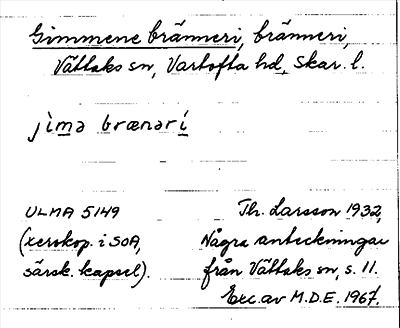 Gimmene bränneri, bränneri,
Vättaks sn, Vartofta hd, Skar. l.
jìmə brænərí
ULMA 5149
(xerokop. i SOA,
särsk. kapsel).
Th. Larsson 1932,
Några anteckningar
från Vättaks sn, s. 11.
Exc. av M.D.E. 1967.